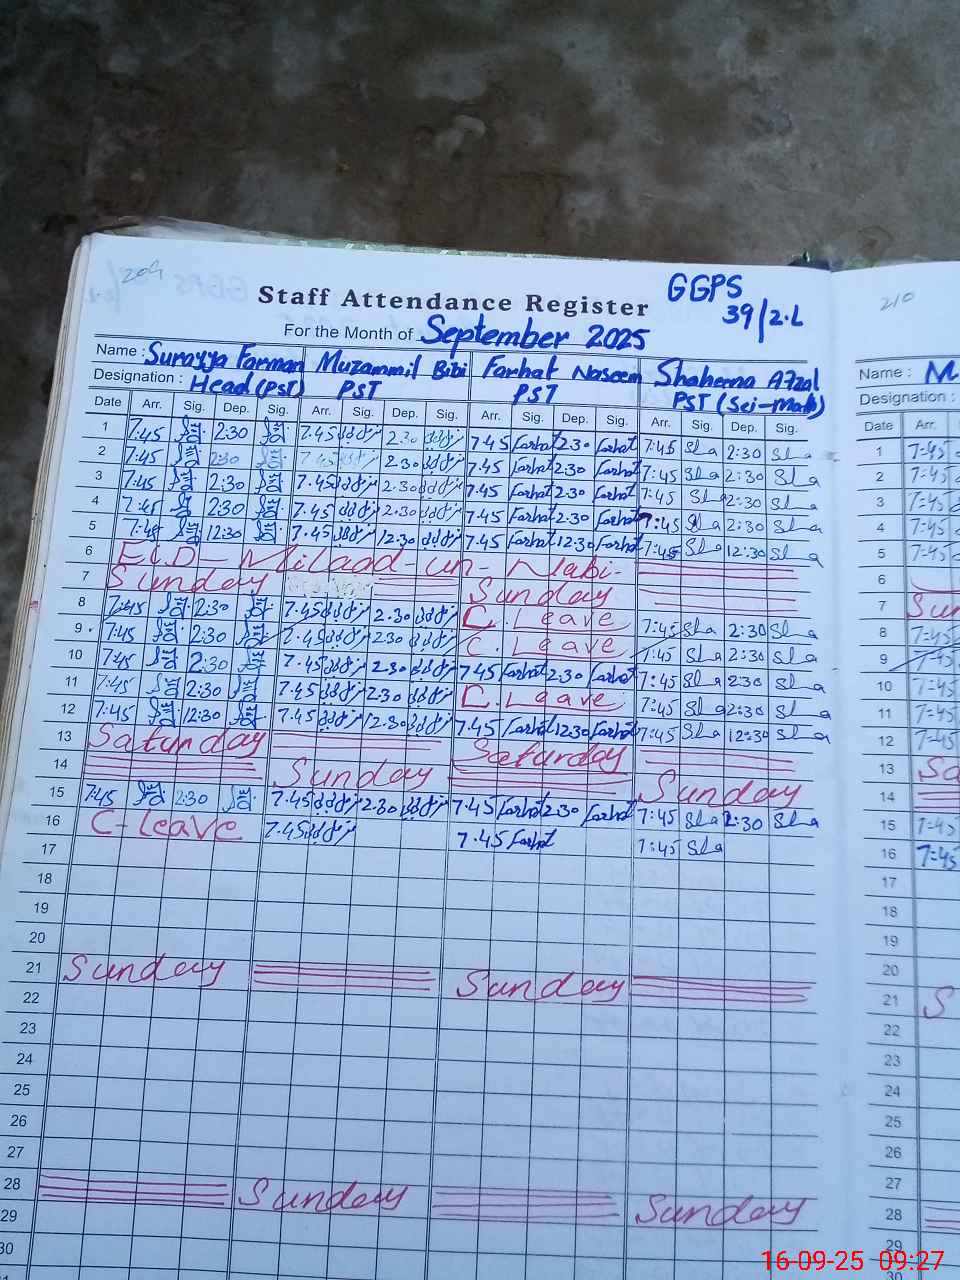 209
Staff Attendance Register
GGPS
39/2.L
For the Month of September 2025
Name : Surayya Farman Muzammil Bibi Farhat Naseem Shaheena Afzal
Designation : Head (PST) PST PST PST (Sci-Math)
Date Arr. Sig. Dep. Sig. Arr. Sig. Dep. Sig. Arr. Sig. Dep. Sig. Arr. Sig. Dep. Sig.
1 7:45 2:30 7.45 2.30 7.45 Farhat 2.30 Farhat 7:45 Sla 2:30 Sla
2 7:45 2:30 7.45 2.30 7.45 Farhat 2.30 Farhat 7:45 Sla 2:30 Sla
3 7:45 2:30 7.45 2.30 7.45 Farhat 2.30 Farhat 7:45 Sla 2:30 Sla
4 7:45 2:30 7.45 2.30 7.45 Farhat 2.30 Farhat 7:45 Sla 2:30 Sla
5 7:45 12:30 7.45 12.30 7.45 Farhat 12.30 Farhat 7:45 Sla 12:30 Sla
6 EID-Milaad-un-Nabi-
7 Sunday Sunday
8 7:45 2:30 7.45 2.30 C. Leave 7:45 Sla 2:30 Sla
9 7:45 2:30 7.45 2.30 C. Leave 7:45 Sla 2:30 Sla
10 7:45 2:30 7.45 2.30 7.45 Farhat 2.30 Farhat 7:45 Sla 2:30 Sla
11 7:45 2:30 7.45 2.30 C. Leave 7:45 Sla 2:30 Sla
12 7:45 12:30 7.45 12.30 7.45 Farhat 12.30 Farhat 7:45 Sla 12:30 Sla
13 Saturday Saturday
14 Sunday Sunday
15 7:45 2:30 7.45 2.30 7.45 Farhat 2.30 Farhat 7:45 Sla 2:30 Sla
16 C-leave 7.45 7.45 Farhat 7:45 Sla
17
18
19
20
21 Sunday Sunday
22
23
24
25
26
27
28 Sunday Sunday
29
30
210
Name : M
Designation :
Date Arr.
1 7=45
2 7=45
3 7=45
4 7=45
5 7=45
6
7 Sun
8 7=45
9 7=45
10 7=45
11 7=45
12 7=45
13 Sa
14
15 7=45
16 7=45
17
18
19
20
21 S
22
23
24
25
26
27
28
29
30
16-09-25 09:27